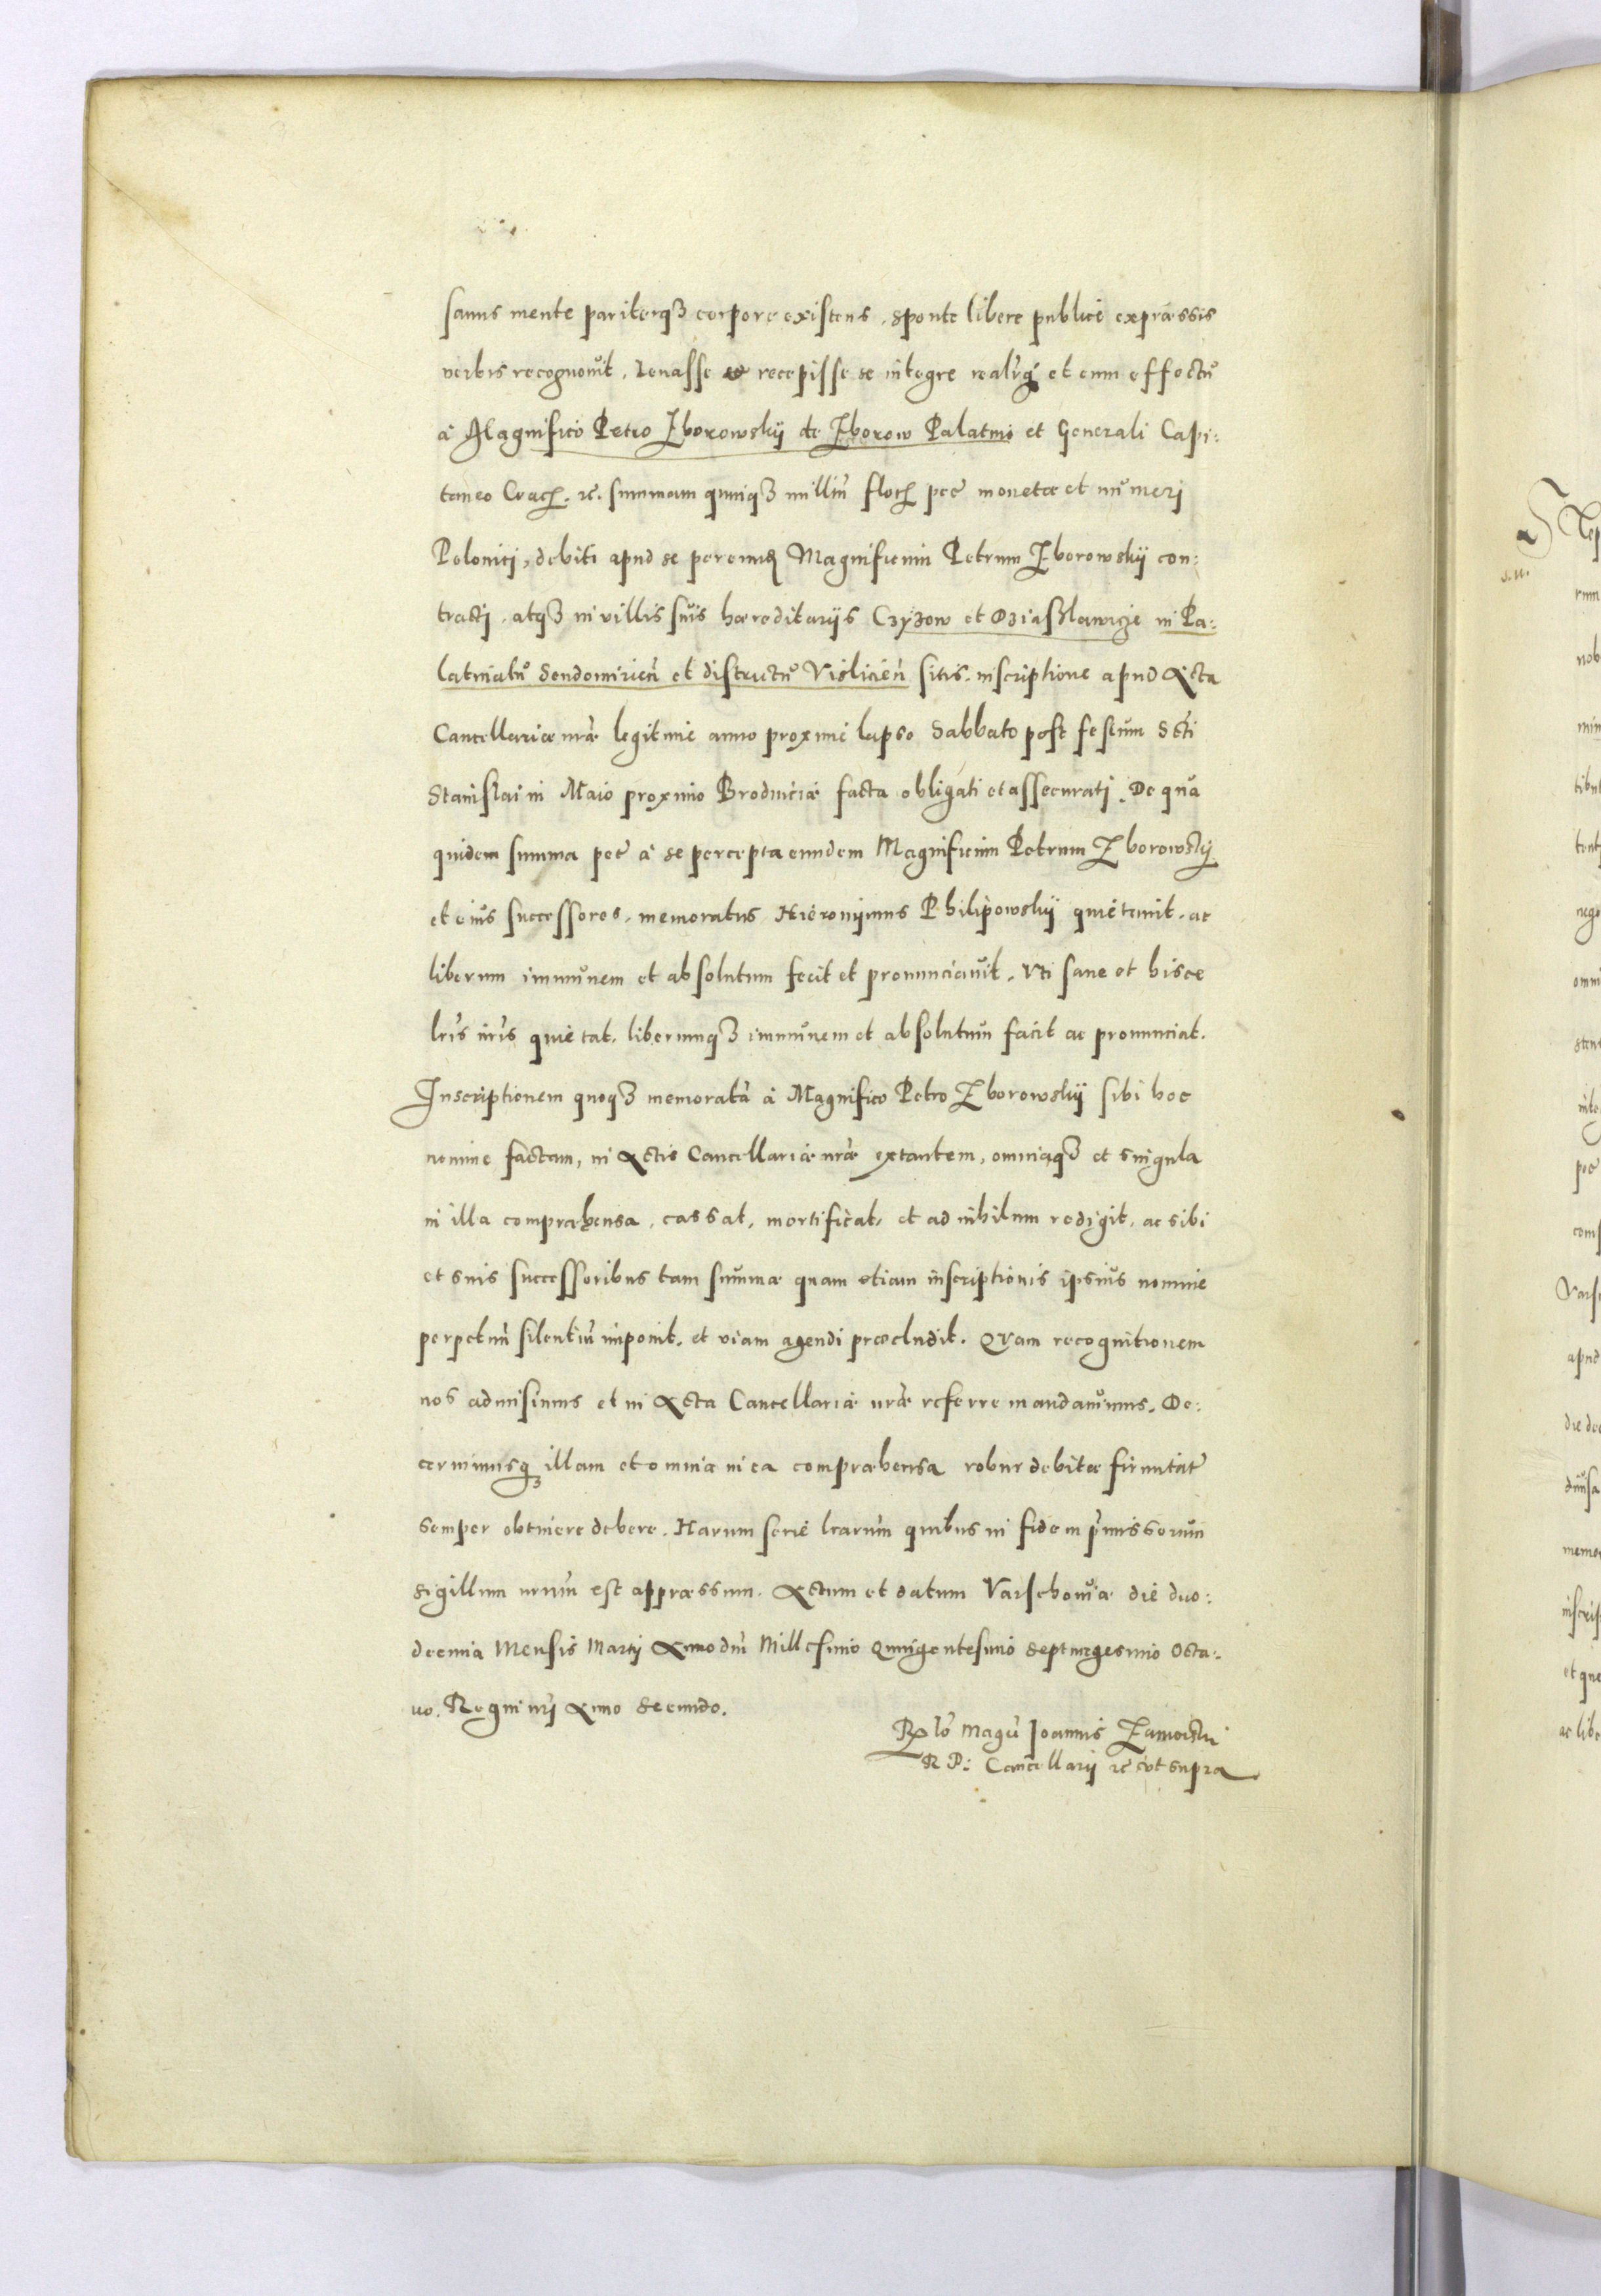 sanus mente pariterq3 corpore existens, sponte libere publicè expræssis
verbis recognovit, levasse et recepisse se integre realr̃q3 et cum effectu
à Magnifico Petro Zborowskij de Zborow Palatino et Generali Capi:
taneo Crac. etc. summam quinq3 milliũ floꝝ pec̃ monetæ et numeri
Polonicj, debiti apud se per eundẽ Magnificum Petrum Zborowskij con:
tractj, atq3 in villis suis hæreditarijs Czyżow et Dziasławicze in Pa:
latinatu Sendomirien̄ et districtu Vislicien̄ sitis, inscriptione apud Acta
Cancellariæ nr̃æ legitime anno proxime lapso Sabbato post festum Scti
Stanislai in Maio proximo Brodniciæ facta obligati et assecuratj. De qua
quidem summa pec̃ à se percepta eundem Magnificum Petrum Zborowskij
et eius successores, memoratus Hieronijmus Philipowskij quietavit, ac
liberum immunem et absolutum fecit et pronunciavit. Vti sane et hisce
lr̃is nr̃is quietat, liberumq3 immunem et absolutum facit ac pronunciat.
Inscriptionem quoq3 memoratã à Magnifico Petro Zborowskij sibi hoc
nomine factam, in Actis Cancellariæ nr̃æ extantem, omniaq3 et singula
in illa compræhensa, cassat, mortificat, et ad nihilum redigit, ac sibi
et suis successoribus tam summæ quam etiam inscriptionis ipsius nomine
perpetuũ silentiũ imponit, et viam agendi præcludit. Quam recognitionem
nos admisimus et in Acta Cancellariæ nr̃æ referre mandavimus. De:
cernimusq3 illam et omnia in ea compræhensa robur debitæ firmitat̃
semper obtinere debere. Harum serie lr̃arum quibus in fidem p̃missorum
sigillum nr̃um est appræssum. Actum et datum Varschoviæ die duo:
decima Mensis Martj Anno dnĩ Millesimo Quingentesimo Septuagesimo Octa:
vo. Regni nr̃j Anno Secundo.
Rlõ Magci Joannis Zamoiski
R P: Cancellarij etc ut supra